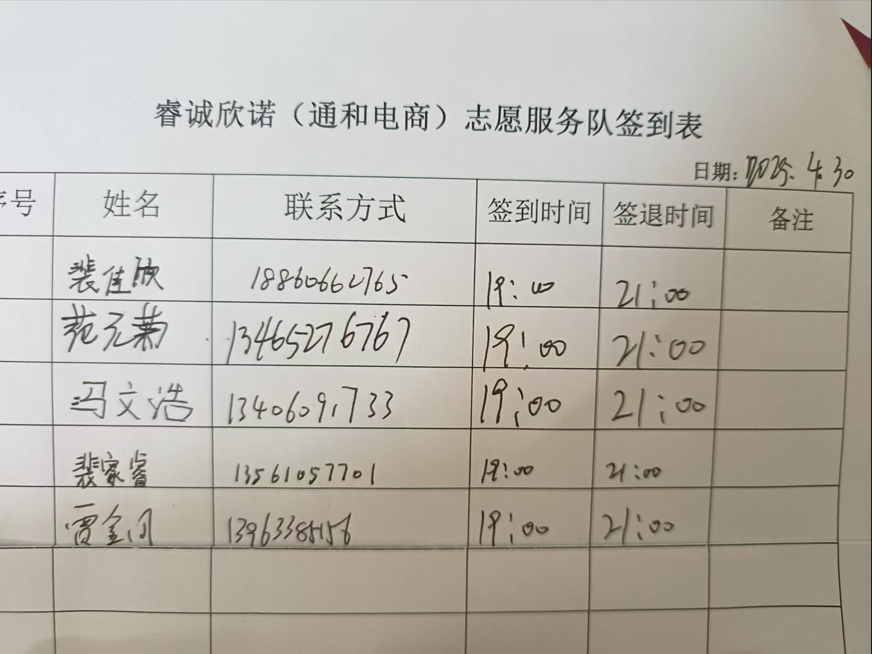 睿诚欣诺（通和电商）志愿服务队签到表
日期：2025.4.30
序号 姓名 联系方式 签到时间 签退时间 备注
裴佳欣 18860662765 19:00 21:00
苑元菊 13465276767 19:00 21:00
冯文浩 13406091733 19:00 21:00
裴家睿 13561057701 19:00 21:00
贾金闪 13963385156 19:00 21:00